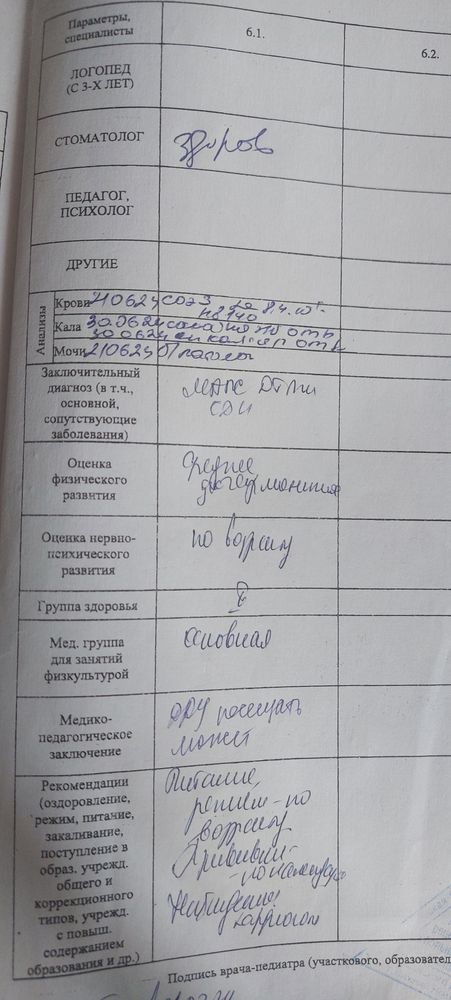 Параметры,
специалисты
6.1.
6.2.
ЛОГОПЕД
(С 3-Х ЛЕТ)
СТОМАТОЛОГ
здоров
ПЕДАГОГ,
ПСИХОЛОГ
ДРУГИЕ
Анализы
Крови 210624 СОЭ 3
Кала 300624
300624
Мочи 210624
Заключительный
диагноз (в т.ч.,
основной,
сопутствующие
заболевания)
МАРС
Оценка
физического
развития
Среднее
Оценка нервно-
психического
развития
по возрасту
Группа здоровья
Мед. группа
для занятий
физкультурой
основная
Медико-
педагогическое
заключение
ДДУ посещать
может
Рекомендации
(оздоровление,
режим, питание,
закаливание,
поступление в
образ. учрежд.
общего и
коррекционного
типов, учрежд.
с повыш.
содержанием
образования и др.)
Питание,
режим - по
возрасту
Прививки
- по календарю
Наблюдение
Подпись врача-педиатра (участкового, образовател